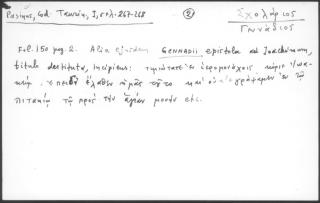 Pasinus, Cod. Taurin., I, σελ. 267-268
②
Σχολάριος
Γεννάδιος
Fol. 150 pag. 2. Alia ejusdem GENNADII epistola ad Joachimum,
titulo destituta, incipiens: τιμιώτατε ἐν ἱερομονάχοις κύριε Ἰωα-
κεὶμ. ἐπειδὴ ἔλαθεν ἡμᾶς τοῦτο καὶ οὐκ ἐγράψαμεν ἐν τῷ
πιτακίῳ τῷ πρὸς τὴν ἁγίαν μονὴν etc.